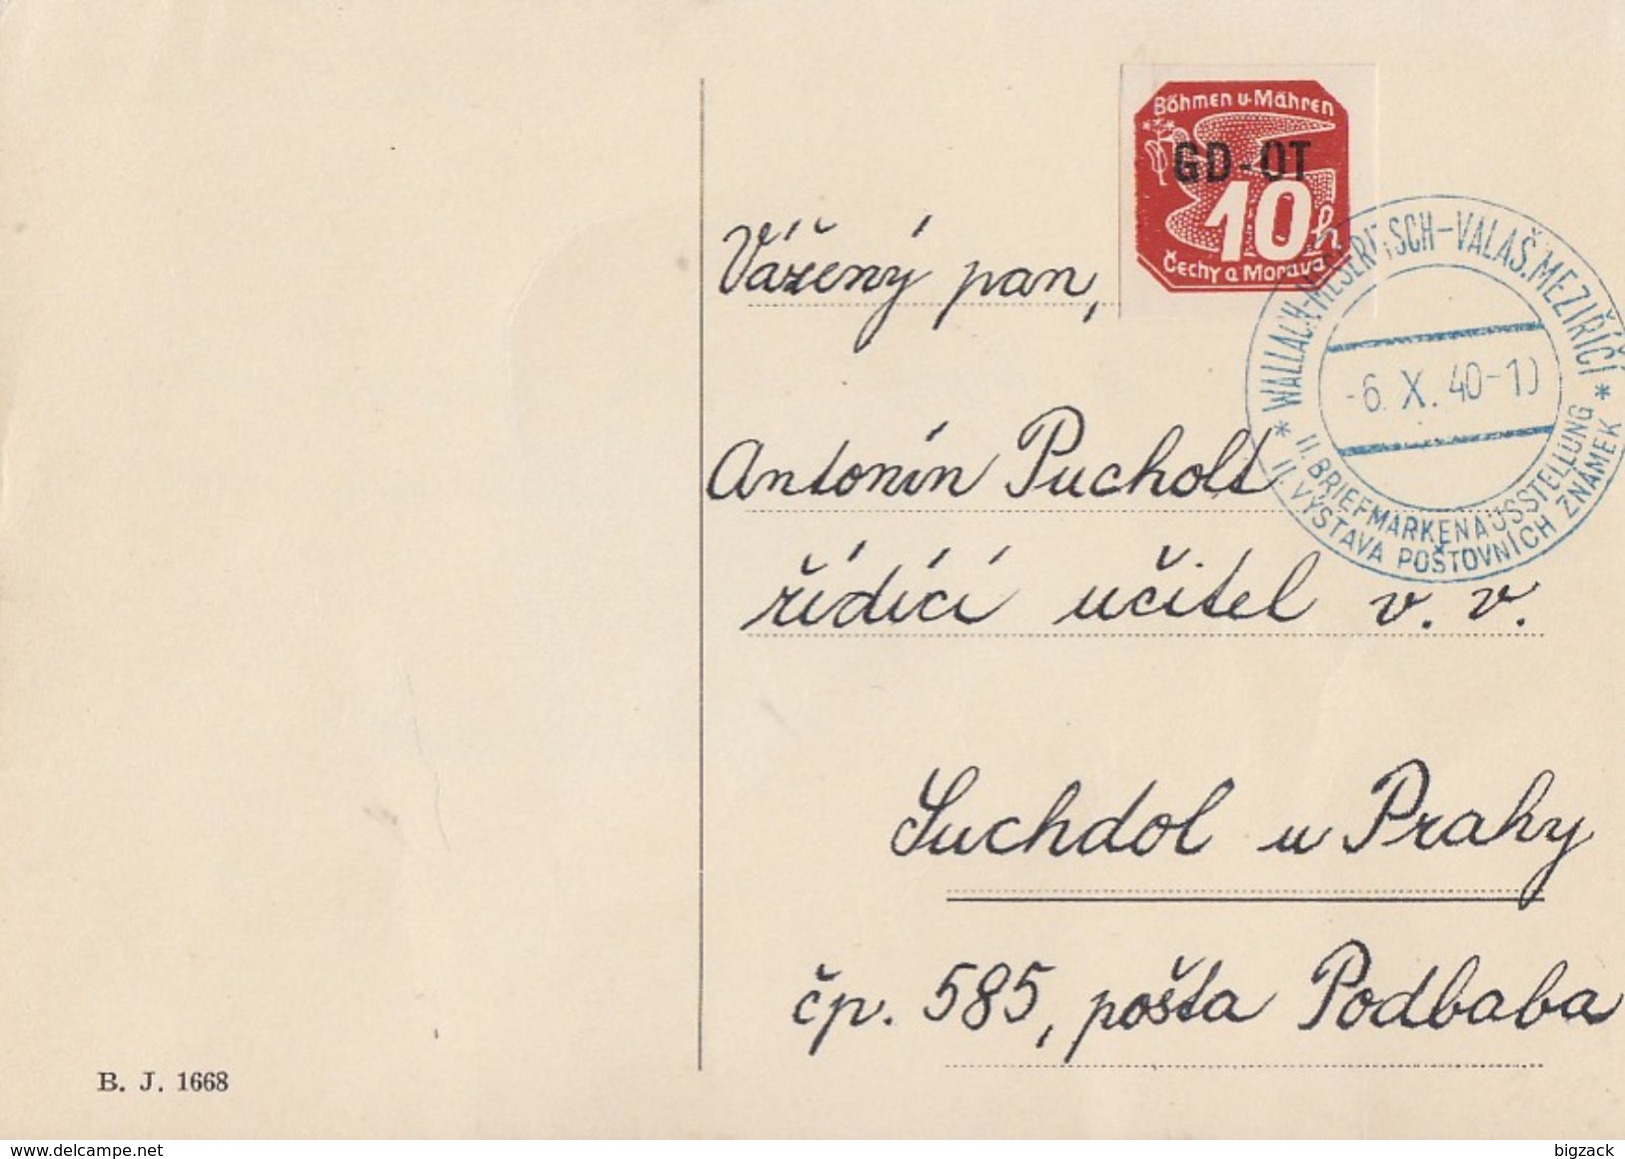 Böhmen u. Mähren
GD-OT
10h
Čechy a Morava
* WALLACH-MESERITSCH-VALAŠ. MEZIŘÍČÍ *
-6. X. 40-10
II. BRIEFMARKENAUSSTELLUNG
II. VÝSTAVA POŠTOVNÍCH ZNÁMEK
Vážený pan,
Antonín Pucholt
řídící učitel v. v.
Suchdol u Prahy
čp. 585, pošta Podbaba
B. J. 1668
delcampe.net
bigzack